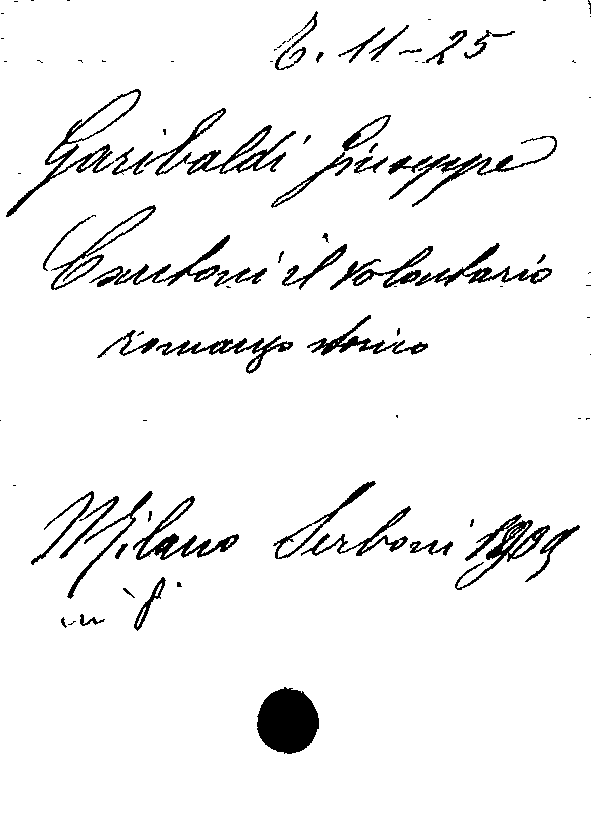 E. 11-25
Garibaldi Giuseppe
Cantoni il volontario
romanzo storico
Milano Serboni 1909
in 8°